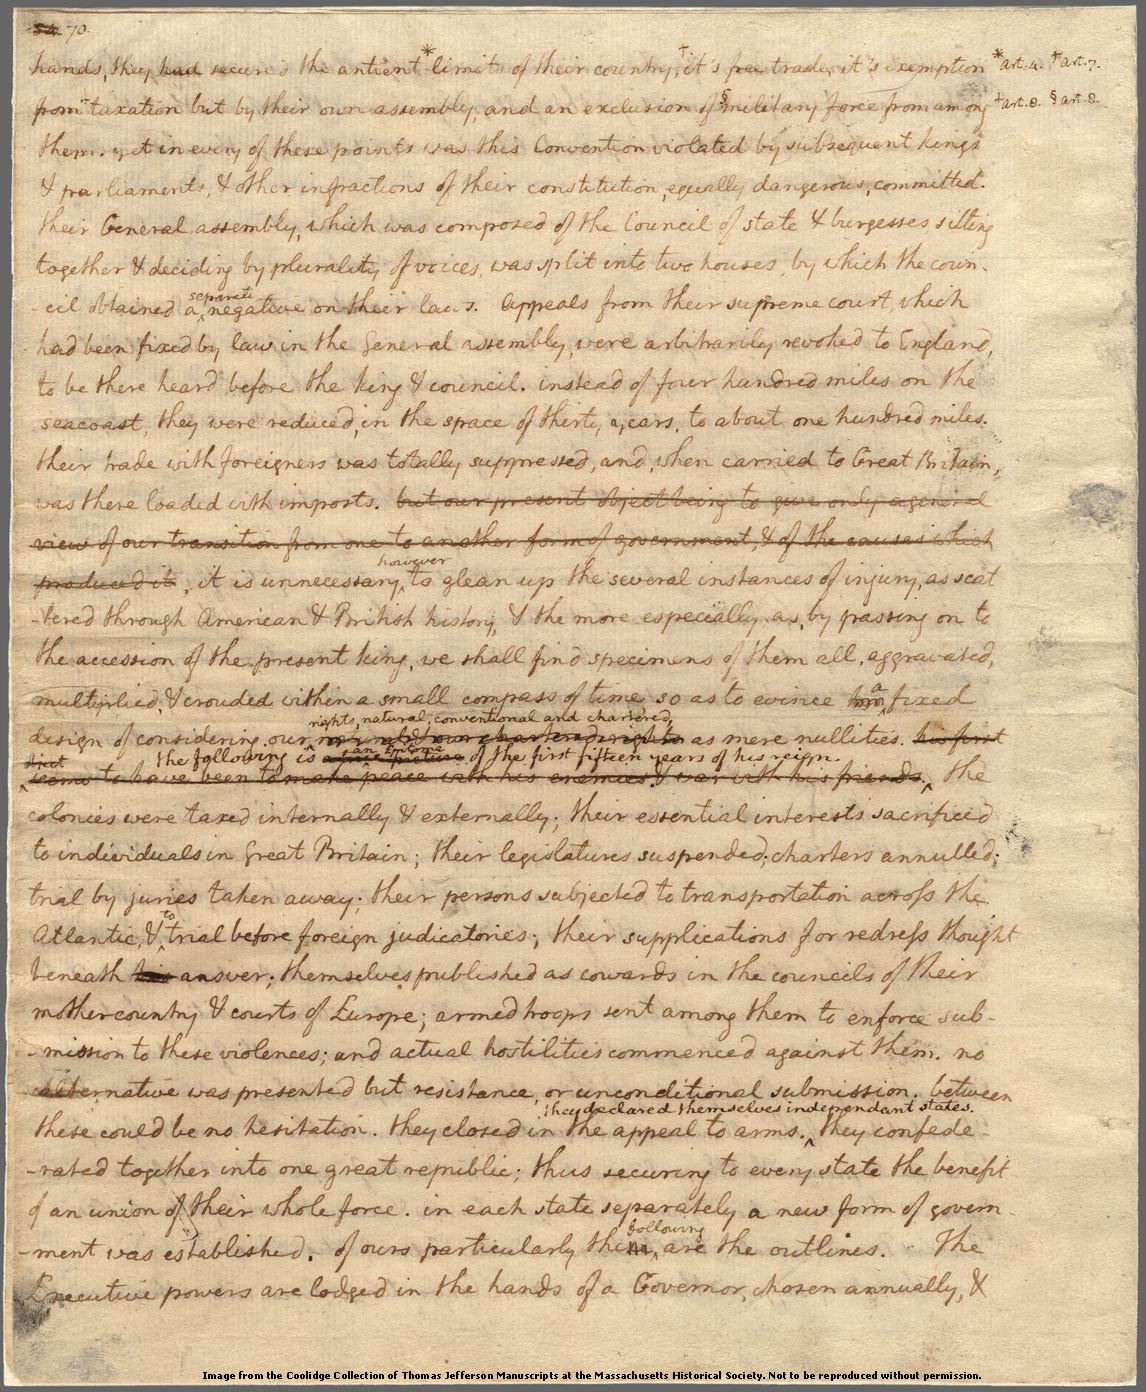 54. 70.
hands, they had secured the antient * limits of their country, † it's free trade, it's exemption * art. 4. † art. 7.
from ‡ taxation but by their own assembly, and an exclusion of § military force from among ‡ art. 8. § art. 8.
them. yet in every of these points was this Convention violated by subsequent kings
& parliaments, & other infractions of their constitution, equally dangerous, committed.
their General assembly, which was composed of the Council of state & burgesses, sitting
together & deciding by plurality of voices, was split into two houses, by which the coun-
separate
-cil obtained a negative on their laws. Appeals from their supreme court, which
had been fixed by law in the General assembly, were arbitrarily revoked to England,
to be there heard before the king & council. instead of four hundred miles on the
seacoast, they were reduced, in the space of thirty years, to about one hundred miles.
their trade with foreigners was totally suppressed, and, when carried to Great Britain,
was there loaded with imposts. but our present object being to give only a general
view of our transition from one to another form of government, & of the causes which
however
produced it, it is unnecessary, to glean up the several instances of injury, as scat
-tered through American & British history, & the more especially as, by passing on to
the accession of the present king, we shall find specimens of them all, aggravated,
a
multiplied, & crouded within a small compass of time so as to evince fixed
rights, natural, conventional and chartered,
design of considering our natural & our chartered rights as mere nullities. his first
the following is a fine picture an epitome of the first fifteen years of his reign.
seems to have been to make peace with his enemies & war with his friends. the
colonies were taxed internally & externally; their essential interests sacrificed
to individuals in Great Britain; their legislatures suspended; charters annulled;
trial by juries taken away; their persons subjected to transportation across the
to
Atlantic, & trial before foreign judicatories; their supplications for redress thought
beneath his answer; themselves published as cowards in the councils of their
mother country & courts of Europe; armed troops sent among them to enforce sub-
-mission to these violences; and actual hostilities commenced against them. no
alternative was presented but resistance, or unconditional submission. between
they declared themselves independant states.
these could be no hesitation. they closed in the appeal to arms. they confede-
-rated together into one great republic; thus securing to every state the benefit
of an union of their whole force. in each state separately a new form of govern-
following
-ment was established. of ours particularly the are the outlines. The
Executive powers are lodged in the hands of a Governor, chosen annually, &
Image from the Coolidge Collection of Thomas Jefferson Manuscripts at the Massachusetts Historical Society. Not to be reproduced without permission.